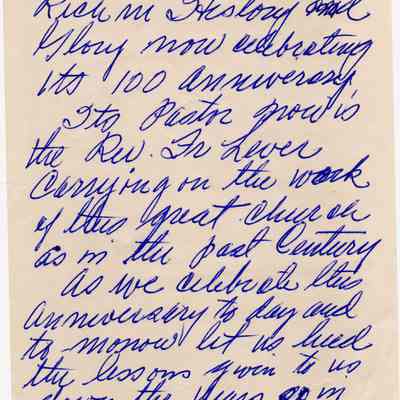 Rich in History and
Glory now celebrating
its 100 Anniversary
Its Pastor now is
the Rev. Fr Lever
Carrying on the work
of this great church
as in the past Century
As we celebrate this
Anniversary to day and
to morrow let us heed
the lessons given to us
down the years as in